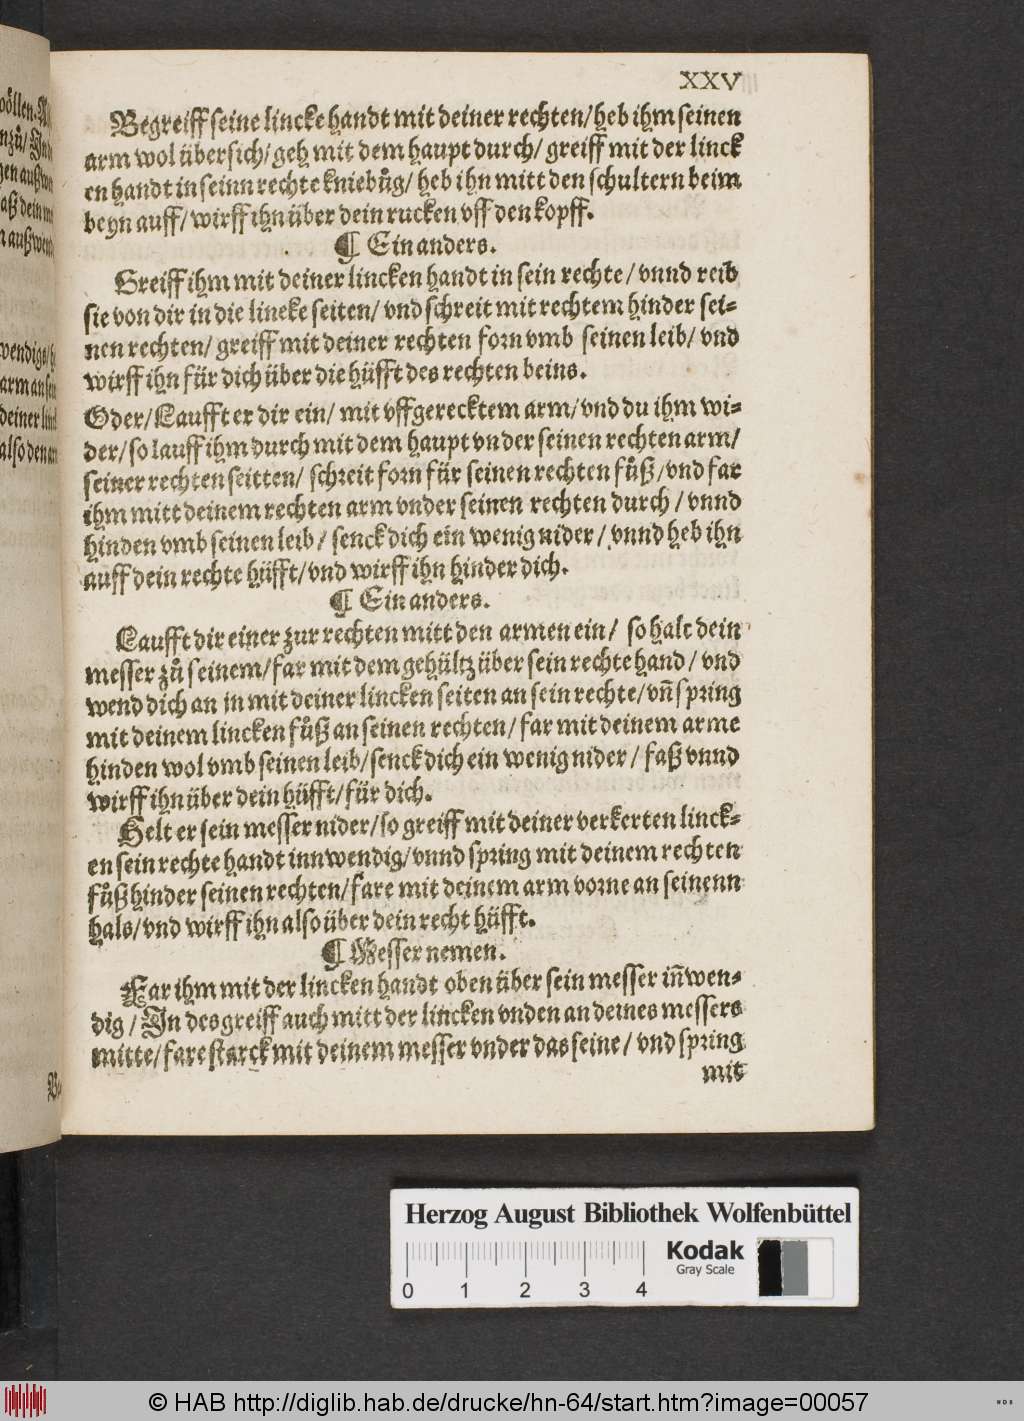 XXV
Begreiff seine lincke handt mit deiner rechten/ heb ihm seinen
arm wol übersich/ geh mit dem haupt durch/ greiff mit der linck
en handt in seinn rechte kniebůg/ heb ihn mitt den schultern beim
beyn auff/ wirff ihn über dein rucken vff den kopff.
¶ Ein anders.
Greiff ihm mit deiner lincken handt in sein rechte/ vnnd reib
sie von dir in die lincke seiten/ vnd schreit mit rechtem hinder sei-
nen rechten/ greiff mit deiner rechten forn vmb seinen leib/ vnd
wirff ihn für dich über die hüfft des rechten beins.
Oder/ Laufft er dir ein/ mit vffgerecktem arm/ vnd du ihm wi-
der/ so lauff ihm durch mit dem haupt vnder seinen rechten arm/
seiner rechten seitten/ schreit forn für seinen rechten fůß/ vnd far
ihm mitt deinem rechten arm vnder seinen rechten durch/ vnnd
hinden vmb seinen leib/ senck dich ein wenig nider/ vnnd heb ihn
auff dein rechte hüfft/ vnd wirff ihn hinder dich.
¶ Ein anders.
Laufft dir einer zur rechten mitt den armen ein/ so halt dein
messer zů seinem/ far mit dem gehültz über sein rechte hand/ vnd
wend dich an in mit deiner lincken seiten an sein rechte/ vñ spring
mit deinem lincken fůß an seinen rechten/ far mit deinem arme
hinden wol vmb seinen leib/ senck dich ein wenig nider/ faß vnnd
wirff ihn über dein hüfft/ für dich.
Helt er sein messer nider/ so greiff mit deiner verkerten linck-
en sein rechte handt innwendig/ vnnd spring mit deinem rechten
fůß hinder seinen rechten/ fare mit deinem arm vorne an seinenn
hals/ vnd wirff ihn also über dein recht hüfft.
¶ Messer nemen.
Far ihm mit der lincken handt oben über sein messer iñwen-
dig/ In des greiff auch mitt der lincken vnden an deines messers
mitte/ fare starck mit deinem messer vnder das seine/ vnd spring
mit
Herzog August Bibliothek Wolfenbüttel
Kodak
Gray Scale
0 1 2 3 4
© HAB http://diglib.hab.de/drucke/hn-64/start.htm?image=00057